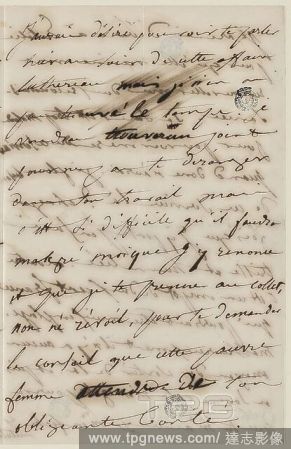 J'aurais désiré pouvoir te parler
hier au soir de cette affaire
mais je n'ai
pas trouvé le temps
point
pour ne pas te déranger
dans ton travail mais
c'est si difficile qu'il faudra
malgré moi que j'y renonce
et que je te prenne au collet,
non au réveil, pour te demander
le conseil que cette pauvre
femme attendre de ton
obligeante bonté.
TPG
www.tpgnews.com / 達志影像